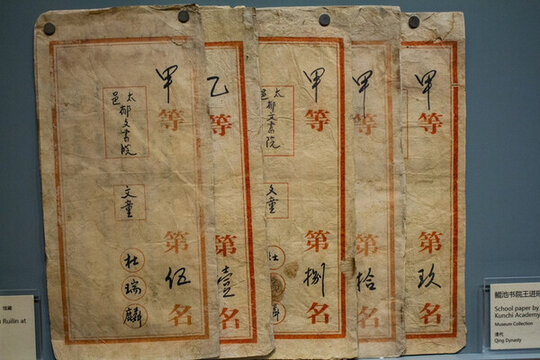 甲等第伍名
太邑
郁文書院
文童
杜瑞麟
乙等第壹名
甲等第捌名
太邑
郁文書院
文童
杜
甲等第拾名
甲等第玖名
馆藏
Ruilin at
鲲池书院王进
School paper by
Kunchi Academy
Museum Collection
清代
Qing Dynasty